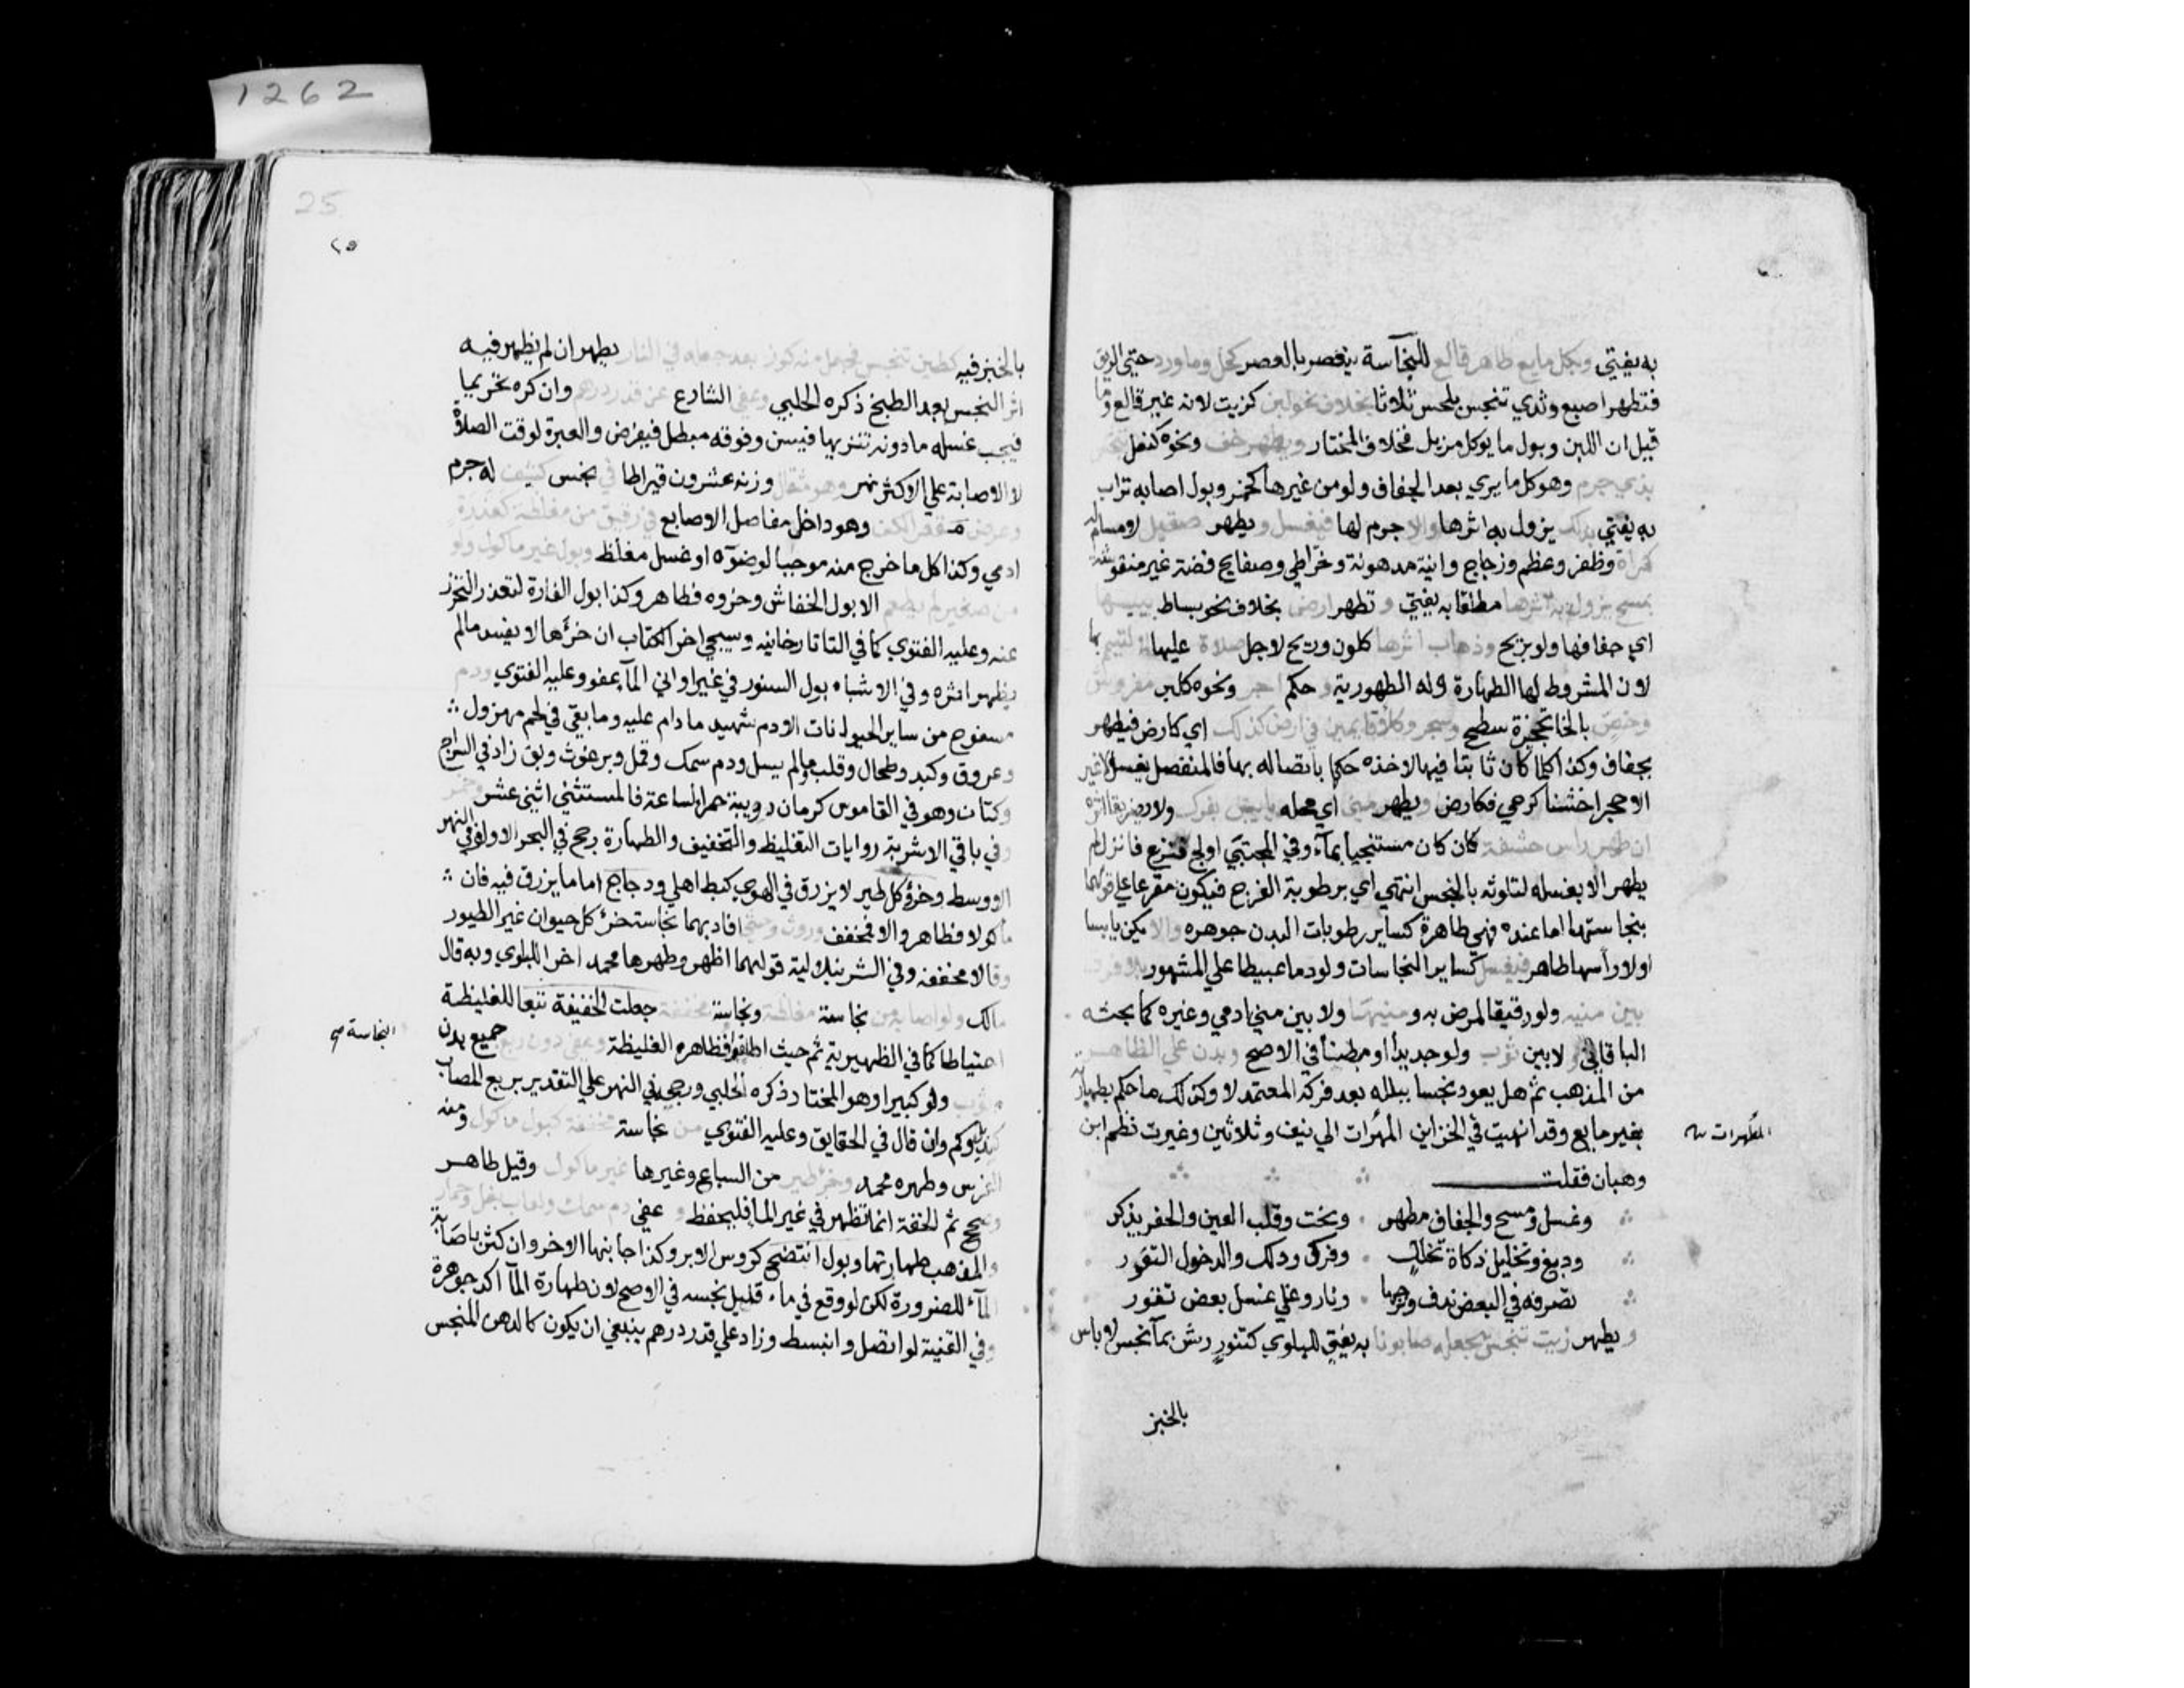 به يفتي وبكل مايع طاهر قالع للنجاسة ينعصر بالعصر كخل وماورد حتي الريق
فتطهر اصبع وثدي تنجس بلحس ثلاثا بخلاف نحو لبن كزيت لانه غير قالع وما
قيل ان اللبن وبول ما يوكل مزيل فخلاف المختار ويطهر خف ونحوه كنعل تنجس
بذي جرم وهو كل ما يري بعد الجفاف ولو من غيرها كخمر وبول اصابه تراب
به يفتي بدلك يزول به اثرها والا جرم لها فيغسل ويطهر صقيل لا مسام له
كمراة وظفر وعظم وزجاج وانية مدهونة وخراطي وصفايح فضة غير منقوشة
بمسح يزول به اثرها مطلقا به يفتي وتطهر ارض بخلاف نحو بساط بيبسها
اي جفافها ولو بريح وذهاب اثرها كلون وريح لاجل صلاة عليها لا لتيمم بها
لان المشروط لها الطهارة وله الطهورية وحكم اجر ونحوه كلبن مفروش
وخص بالخا تحجيزة سطح وشجر وكلا قايمين في ارض كذلك اي كارض فيطهر
بجفاف وكذا كلما كان ثابتا فيها لاخذه حكمها باتصاله بها فالمنفصل يغسل لا غير
الا حجرا خشنا كرحي فكارض ويطهر مني اي محله يابس بفرك ولا يضر بقا اثره
ان طهر راس حشفة كان كان مستنجيا بمآء وفي المجتبي اولج فنزع فانزل لم
يطهر الا بغسله لتلوثه بالنجس انتهي اي برطوبة الفرج فيكون مفرعا علي قولهما
بنجاستها اما عنده فهي طاهرة كساير رطوبات البدن جوهره والا يكن يابسا
او لا راسها طاهر فيغسل كساير النجاسات ولو دما عبيطا علي المشهور بلا فرق
بين منيه ولو رقيقا لمرض به ومنيها ولا بين مني ادمي وغيره كما بحثه
الباقاني ولا بين ثوب ولو جديدا او مبطنا في الاصح وبدن علي الظاهر
من المذهب ثم هل يعود نجسا ببلله بعد فركه المعتمد لا وكذا كل ما حكم بطهارته
بغير مايع وقد انهيت في الخزاين المطهرات الي نيف وثلاثين وغيرت نظم ابن
المطهرات
وهبان فقلت
وغسل ومسح والجفاف مطهر ونحت وقلب العين والحفر يذكر
ودبغ وتخليل ذكاة تخلل وفرك ودلك والدخول التغور
تصرفه في البعض ندف ونزحها ونار وغلي غسل بعض تقور
ويطهر زيت تنجس بجعله صابونا به يفتي للبلوي كتنور رش بمآ نجس لا باس
بالخبز
1262
25
٢٥
بالخبز فيه كطين تنجس فجعل منه كوز بعد جعله في النار يطهر ان لم يظهر فيه
اثر النجس بعد الطبخ ذكره الحلبي وعفي الشارع عن قدر درهم وان كره تحريما
فيجب غسله مادونه تنزيها فيسن وفوقه مبطل فيفرض والعبرة لوقت الصلاة
لا الاصابة علي الاكثر نهر وهو مثقال وزنه عشرون قيراطا في نجس كثيف له جرم
وعرض مقعر الكف وهو داخل مفاصل الاصابع في رقيق من مغلظة كعذرة
ادمي وكذا كل ما خرج منه موجبا لوضوء او غسل مغلظ وبول غير ماكول ولو
من صغير لم يطعم الا بول الخفاش وخروه فطاهر وكذا بول الفارة لتعذر التحرز
عنه وعليه الفتوي كما في التاتارخانيه وسيجي اخر الكتاب ان خرءها لا يفسد مالم
يظهر اثره وفي الاشباه بول السنور في غير اواني المآ يعفو وعليه الفتوي ودم
مسفوح من ساير الحيوانات الا دم شهيد ما دام عليه وما بقي في لحم مهزول
وعروق وكبد وطحال وقلب ومالم يسل ودم سمك وقمل وبرغوث وبق زاد في السراج
وكتان وهو في القاموس كرمان دويبة حمرا لساعة فالمستثني اثني عشر وخمر
وفي باقي الاشربة روايات التغليظ والتخفيف والطهارة رجح في البحر الاول وفي النهر
الاوسط وخرؤ كل طير لا يزرق في الهوي كبط اهلي ودجاج اما ما يزرق فيه فان
ماكولا فطاهر والا فمخفف وروث وخثي افاد بهما نجاسة خرء كل حيوان غير الطيور
وقالا مخففة وفي الشرنبلالية قولهما اظهر وطهرها محمد اخرا للبلوي وبه قال
مالك ولو اصابه من نجاسة مغلظة ونجاسة مخففة جعلت الخفيفة تبعا للغليظة
النجاسة
احتياطا كما في الظهيرية ثم حيث اطلقوا فظاهره الغليظة وعفي دون ربع جميع بدن
وثوب ولو كبيرا وهو المختار ذكره الحلبي ورجحه في النهر علي التقدير بربع المصاب
كيد وكم وان قال في الحقايق وعليه الفتوي من نجاسة مخففة كبول ماكول ومنه
الفرس وطهره محمد وخرء طير من السباع وغيرها غير ماكول وقيل طاهر
وصحح ثم الخفة انما تظهر في غير المآ فليحفظ و عفي دم سمك ولعاب بغل وحمار
والمذهب طهارتها وبول انتضح كروس الابر وكذا جانبها الاخر وان كثر باصابة
المآء للضرورة لكن لو وقع في ماء قليل نجسه في الاصح لان طهارة المآ اكد جوهرة
وفي القنية لو اتصل وانبسط وزاد علي قدر درهم ينبغي ان يكون كالدهن المنجس